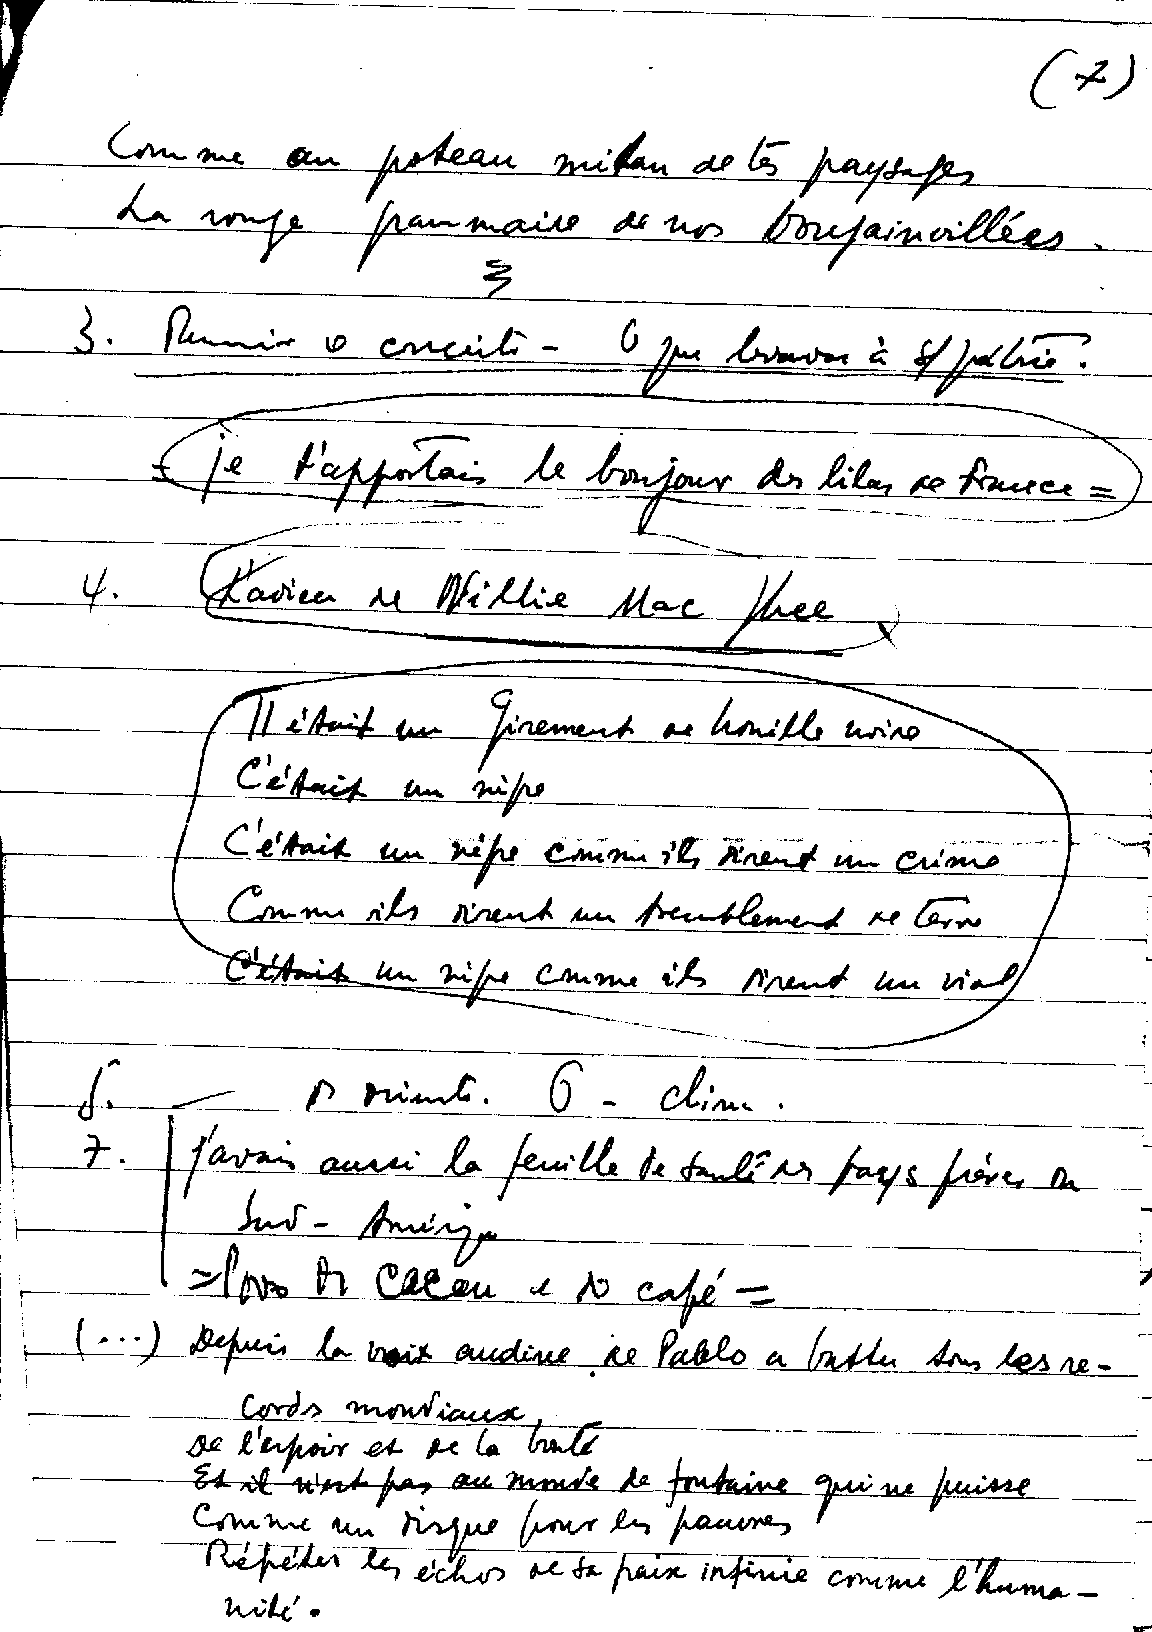 (7)
Comme au poteau mitan de tes paysages
La rouge grammaire de nos bougainvillées.
3. Réunir
je t'apportais le bonjour des lilas de France =
4. L'adieu de Willie Mac Ghee
Il était un Gisement de houille noire
C'était un nègre
C'était un nègre comme ils disent un crime
Comme ils disent un tremblement de terre
C'était un nègre comme ils disent un viol
5. 6 - chine.
7. j'avais aussi la feuille de santé des pays frères du
Sud-Amérique
= Pays du Cacao et du café =
(...) Depuis la voix andine de Pablo a battu tous les re-
cords mondiaux
de l'espoir et de la bonté
Et il n'est pas au monde de fontaine qui ne puisse
Comme un disque pour les pauvres
Répéter les échos de sa paix infinie comme l'huma-
nité.